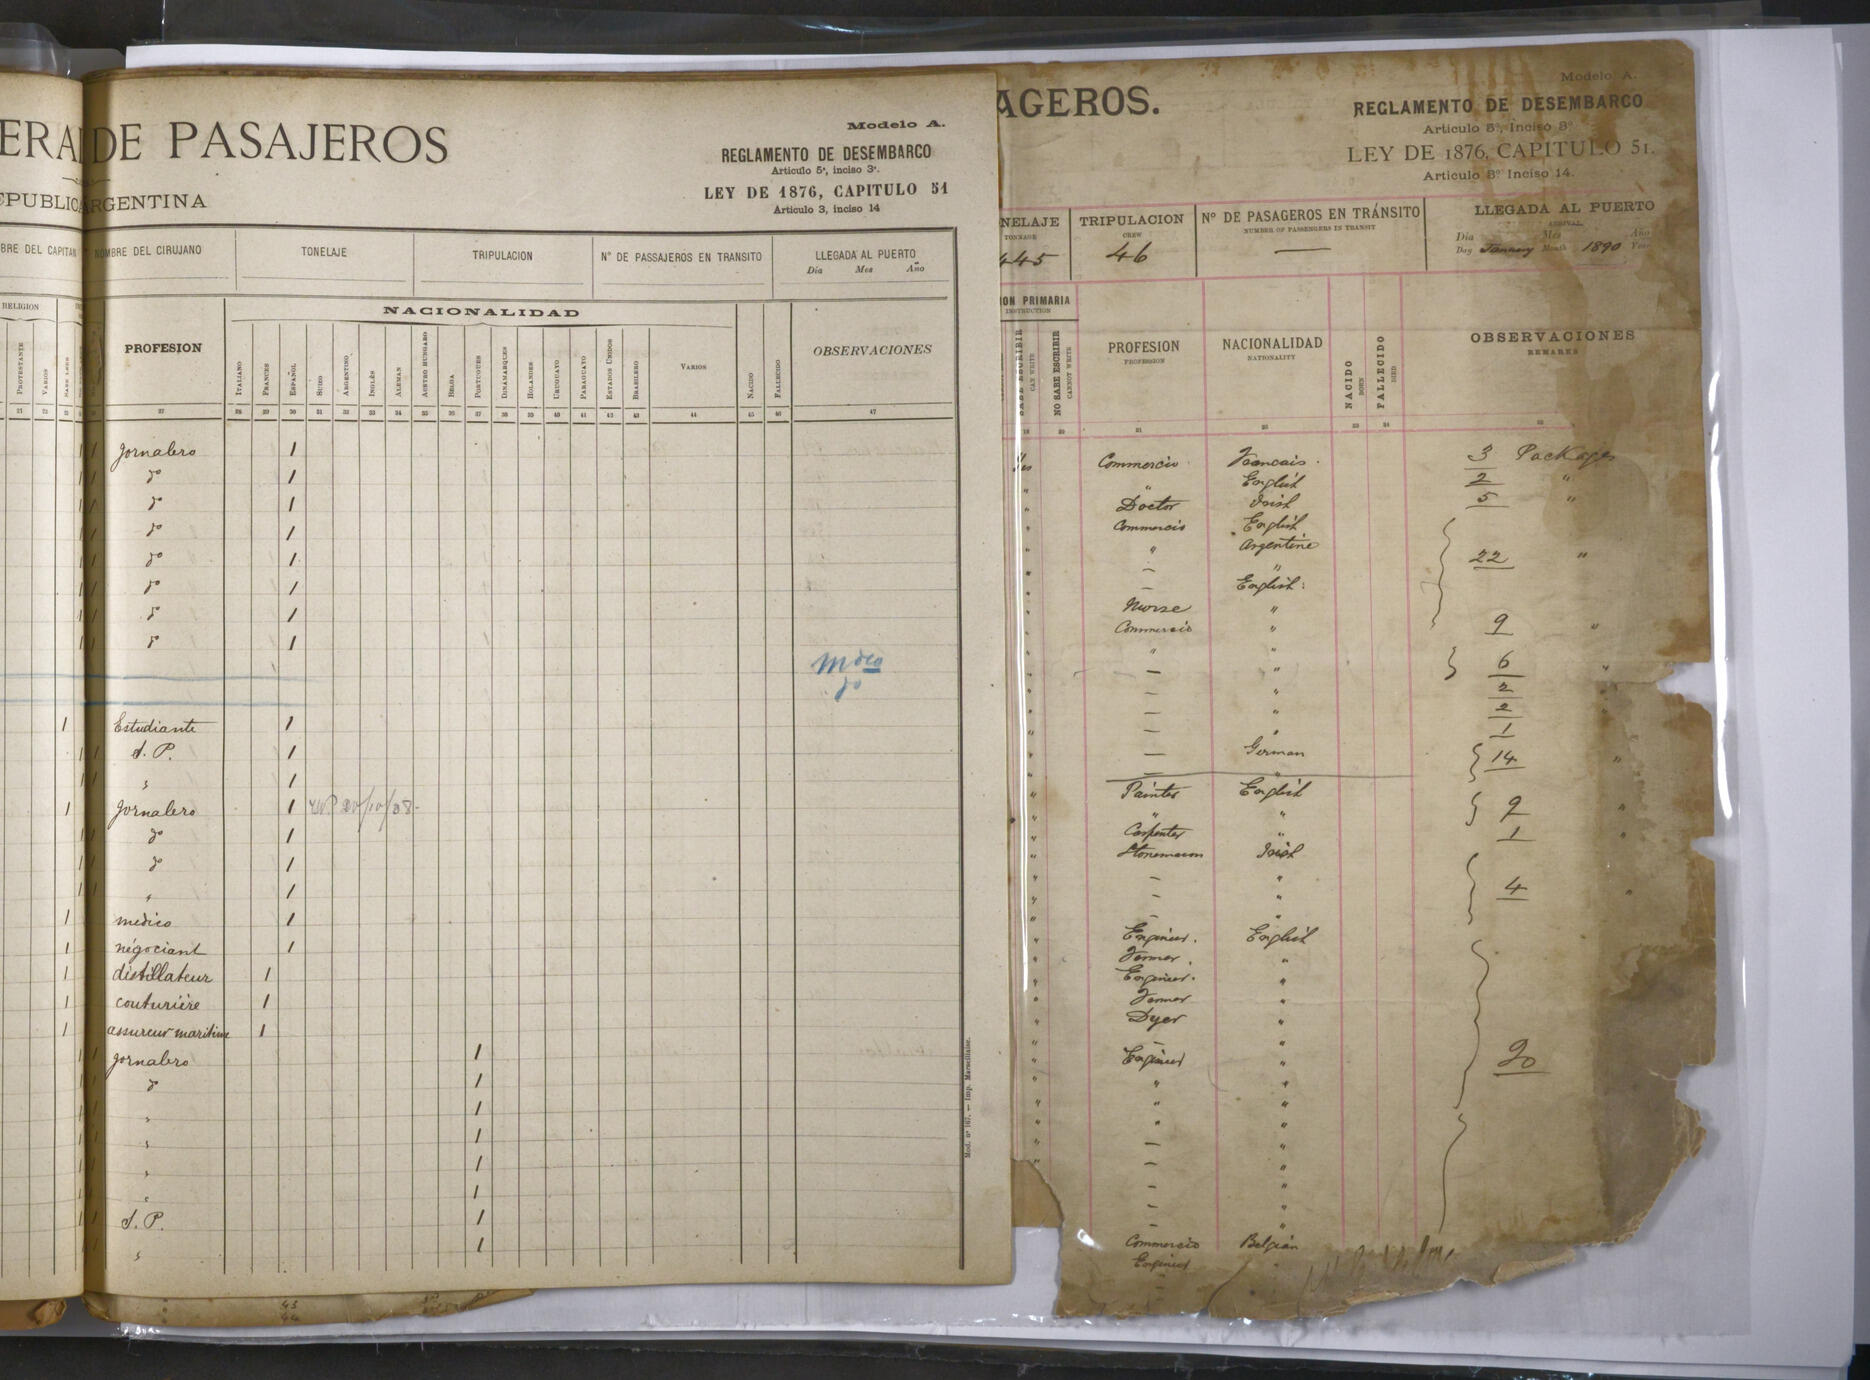 DE PASAJEROS
ARGENTINA
Modelo A.
REGLAMENTO DE DESEMBARCO
Articulo 5º, inciso 3º.
LEY DE 1876, CAPITULO 51
Articulo 3, inciso 14
NOMBRE DEL CIRUJANO TONELAJE TRIPULACION Nº DE PASSAJEROS EN TRANSITO LLEGADA AL PUERTO
Dia Mes Año
RELIGION NACIONALIDAD
PROTESTANTE VARIOS PROFESION ITALIANO FRANCES ESPAÑOL SUIZO ARGENTINO INGLÉS ALEMAN AUSTRO HUNGARO BELGA PORTUGUES DINAMARQUES HOLANDES URUGUAYO PARAGUAYO ESTADOS UNIDOS BRASILERO VARIOS NACIDO FALLECIDO OBSERVACIONES
21 22 23 27 28 29 30 31 32 33 34 35 36 37 38 39 40 41 42 43 44 45 46 47
Jornalero 1
dº 1
dº 1
dº 1
dº 1
dº 1
dº 1
dº 1
dº
1 Estudiante 1
S. P. 1
" 1
1 Jornalero 1
dº 1
dº 1
" 1
1 medico 1
1 négociant 1
1 distillateur 1
1 couturière 1
1 assureur maritime 1
Jornalero 1
dº 1
" 1
" 1
" 1
" 1
S. P. 1
" 1
Mod. nº 167. — Imp. Marseillaise.
43
44
AGEROS.
Modelo A.
REGLAMENTO DE DESEMBARCO
Articulo 5º, Inciso 3º
LEY DE 1876, CAPITULO 51.
Articulo 3º Inciso 14.
NELAJE TRIPULACION Nº DE PASAGEROS EN TRÁNSITO LLEGADA AL PUERTO
TONNAGE CREW NUMBER OF PASSENGERS IN TRANSIT ARRIVAL
Dia Mes Año
445 46 — Day January Month 1890 Year
ION PRIMARIA
INSTRUCTION
SABE ESCRIBIR CAN WRITE NO SABE ESCRIBIR CANNOT WRITE PROFESION PROFESSION NACIONALIDAD NATIONALITY NACIDO BORN FALLECIDO DIED OBSERVACIONES REMARKS
Yes Commercio Francais 3 Packages
" " English 2 "
" Doctor Irish 5 "
" Commercio English
" " Argentine 22 "
" — "
" — English
" Nurse "
" Commercio " 9 "
" " "
" — " 6 "
" — " 2 "
" — " 2 "
" — " 1
" — German 14 "
— "
" Painter English 9 "
" " "
" Carpenter " 1 "
" Stonemason Irish
" — "
" — " 4 "
" — "
" Engineer English
" Farmer "
" Engineer "
" Farmer "
" Dyer "
" — "
" Engineer " 20
" " "
" " "
" " "
" — "
" — "
— "
— "
— "
Commercio Belgian
Engineer "